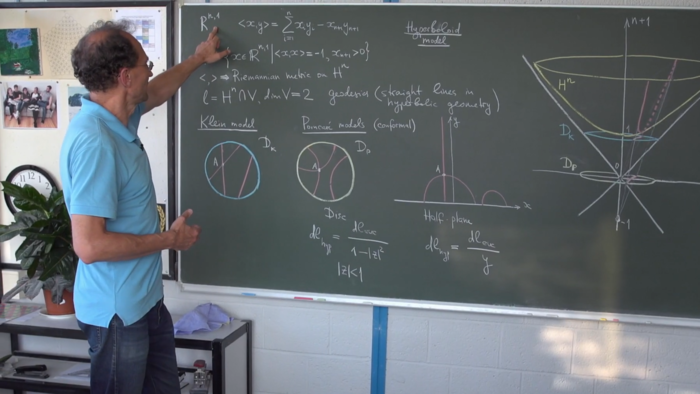 ℝⁿ,¹ <x,y> = Σⁿᵢ₌₁ xᵢyᵢ − xₙ₊₁yₙ₊₁
Hyperboloid
model
{x∈ℝⁿ,¹ | <x,x> = −1, xₙ₊₁ > 0}
< , > ⇒ Riemannian metric on Hⁿ
ℓ = Hⁿ ∩ V, dim V = 2 geodesics (straight lines in
hyperbolic geometry)
Klein model
Poincaré models (conformal)
D_K
A
D_P
A
y
A
x
Disc
Half-plane
dl_hyp = dl_euc / 1−|z|²
|z|<1
dl_hyp = dl_euc / y
n+1
Hⁿ
1
D_K
D_P
0
−1